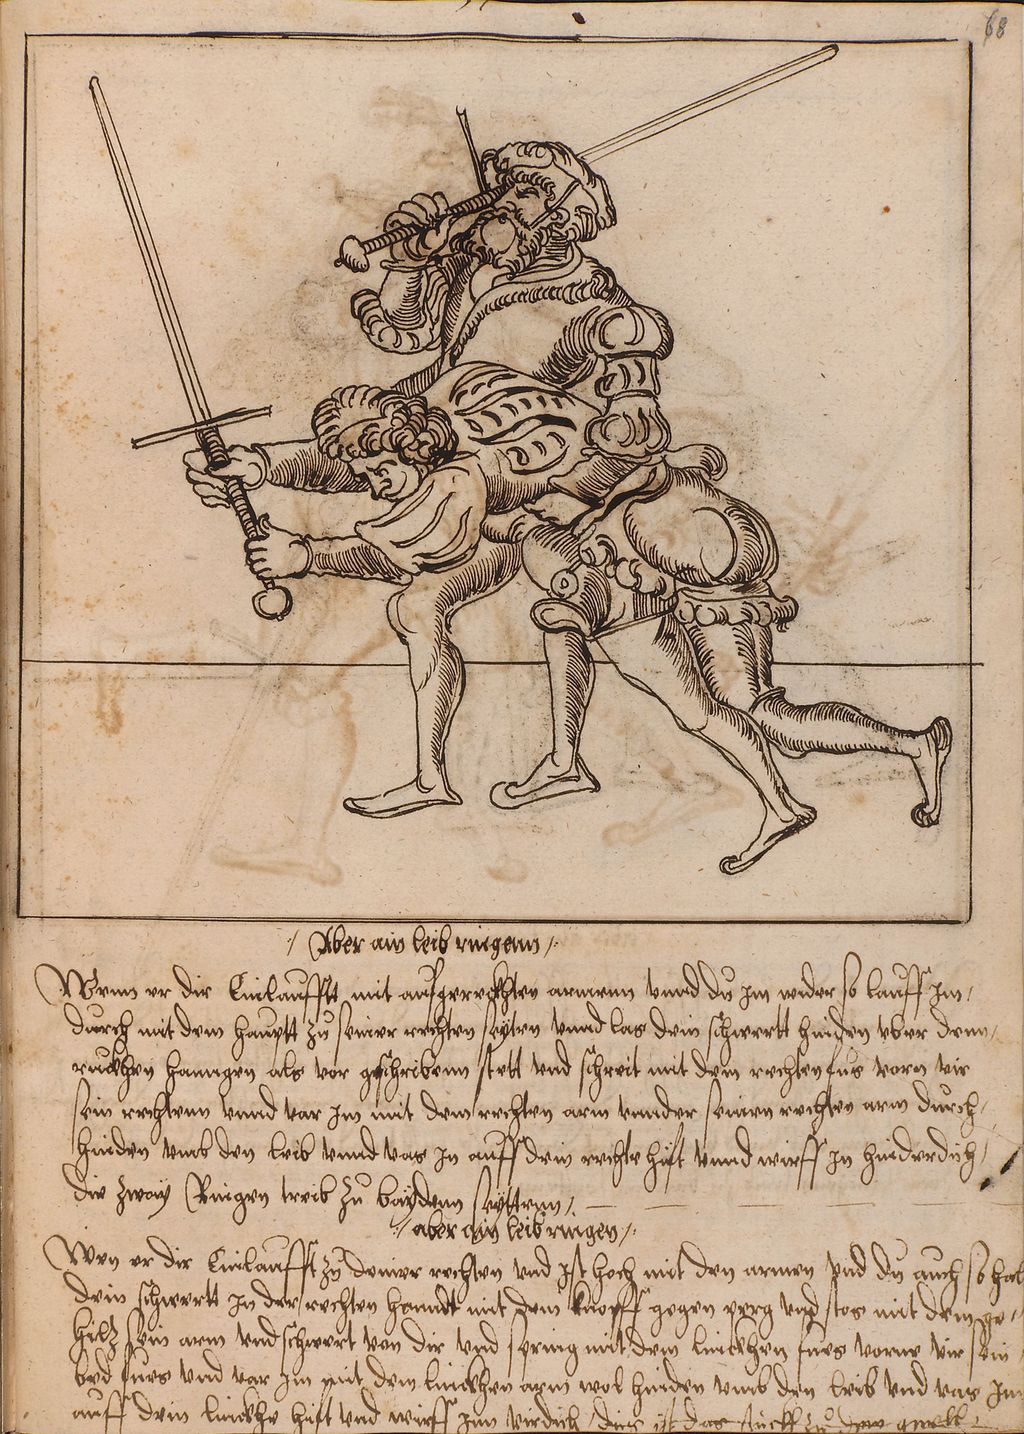 68
Aber ain leib ringenn
Wenn er dir Einlaufft mit aufgereckhten armenn unnd du im wider so lauff im
durch mit dem hauptt zu seiner rechten seyten unnd las dein schwertt hinden uber denn
ruckhen hanngen als vor geschribenn stett und schreit mit dem rechten fus vorn vir
sein rechtenn unnd var im mit dem rechten arm unnder seinen rechten arm durch
hinden umb den leib unnd vas in auff dein rechte hüft unnd wirff in hinderdich
die zway Ringen treib zu baydenn seyttenn
aber ain leib ringen
Wen er dir Einlaufft zu deiner rechten und ist hoch mit den armen und du auch so hal
dein schwertt in der rechten hanndt mit dem knopff gegen perg und stos mit dem ge
hilz sein arm und schwert von dir und spring mit dem linckhen fues vorne vir sein
bed fues und var im mit dem linckhen arm wol hinden umb den leib und vas im
auff dein linckhe hüft und wirff im virdich dis ist das stuckh zu